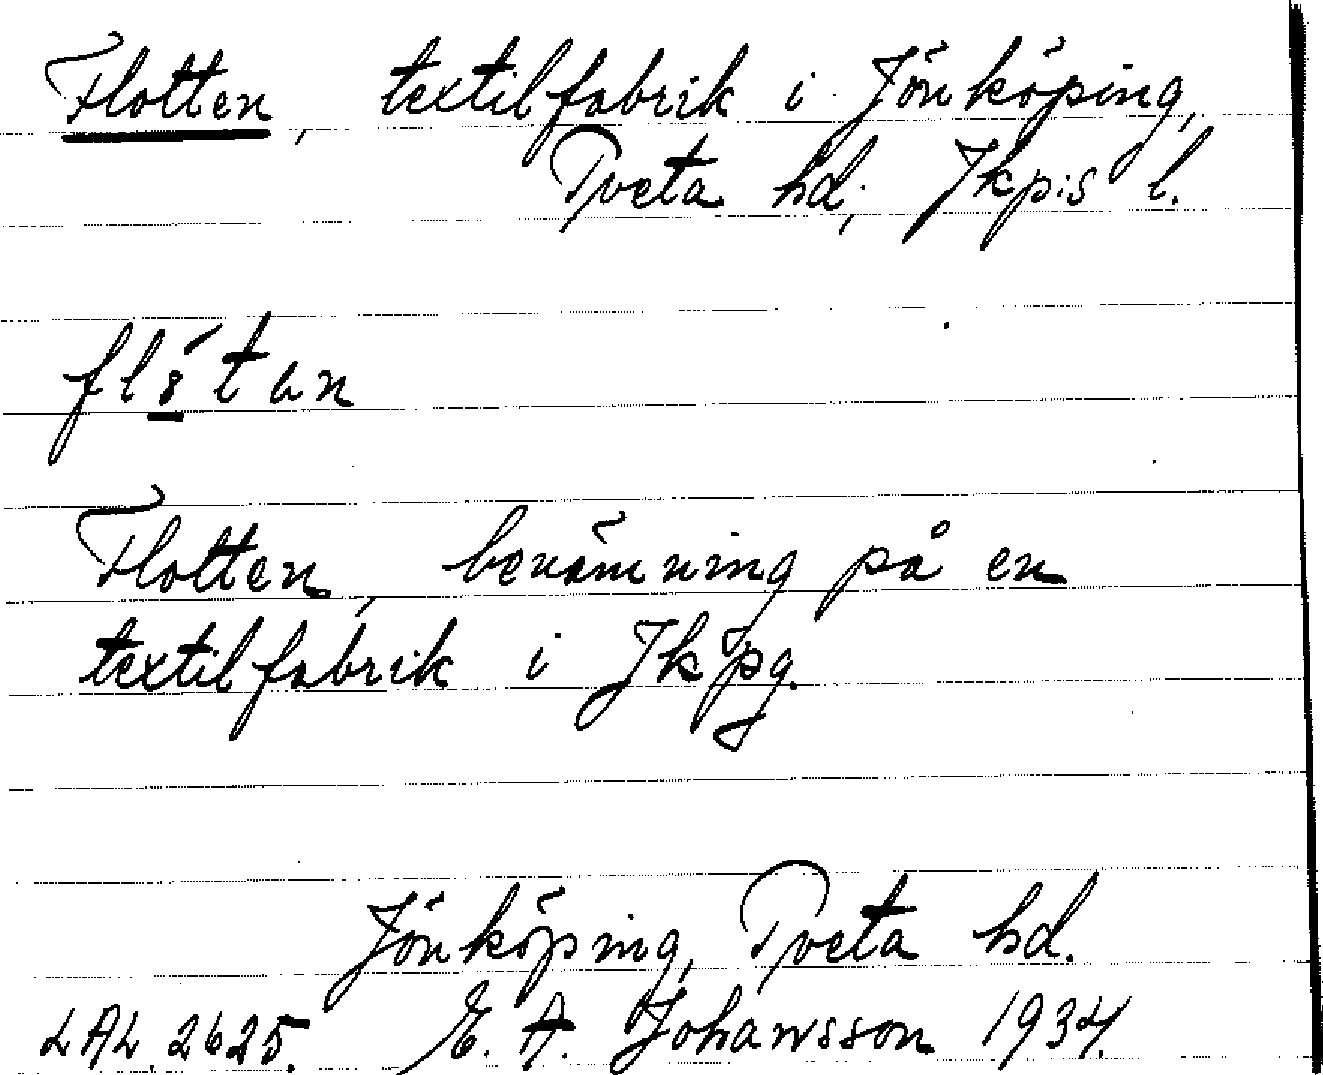 Flotten, textilfabrik i Jönköping,
Tveta hd; Jkp:s l.
Flotten, benämning på en
textilfabrik i Jkpg.
Jönköping, Tveta hd.
LAL 2625. E. A. Johansson 1934.